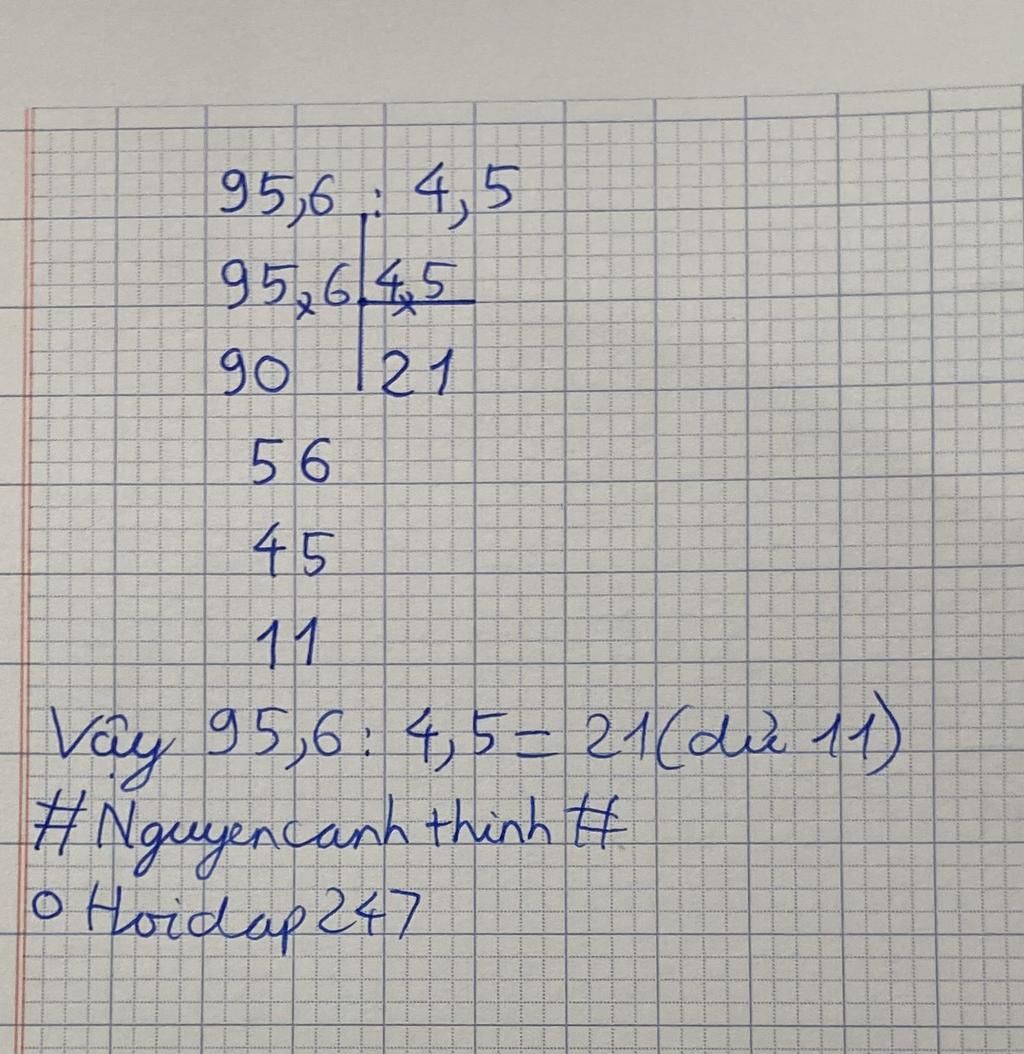 95,6 : 4,5
95,6 4,5
90 21
56
45
11
Vậy 95,6 : 4,5 = 21 (dư 11)
#Nguyencanhthinh#
o Hoidap247